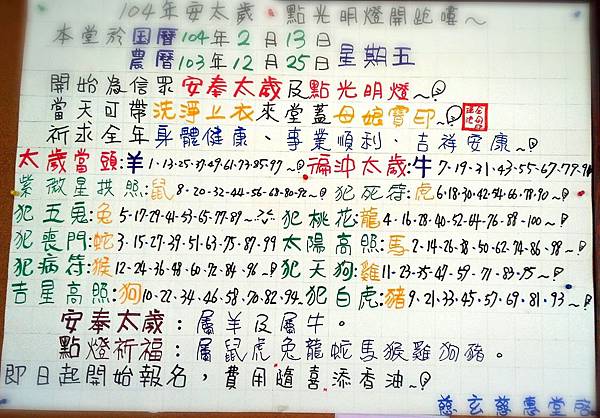 104年安太歲、點光明燈開跑嘍～
本堂於国曆104年2月13日
農曆103年12月25日 星期五
開始為信眾安奉太歲及點光明燈～
當天可帶洗淨上衣來堂蓋母娘寶印～
祈求全年身體健康、事業順利、吉祥安康～
太歲當頭:羊1.13.25.37.49.61.73.85.97～ 偏沖太歲:牛7.19.31.43.55.67.77.91
紫微星拱照:鼠8.20.32.44.56.68.80.92～ 犯死符:虎6.18.30.42.54.66.78.90～
犯五鬼:兔5.17.29.41.53.65.77.89～ 犯桃花:龍4.16.28.40.52.64.76.88.100～
犯喪門:蛇3.15.27.39.51.63.75.87.99 太陽高照:馬2.14.26.38.50.62.74.86.98～
犯病符:猴12.24.36.48.60.72.84.96～ 犯天狗:雞11.23.35.47.59.71.83.95～
吉星高照:狗10.22.34.46.58.70.82.94～ 犯白虎:豬9.21.33.45.57.69.81.93～
安奉太歲:屬羊及屬牛。
點燈祈福:屬鼠虎兔龍蛇馬猴雞狗豬。
即日起開始報名,費用隨喜添香油～
慈玄慈惠堂啟